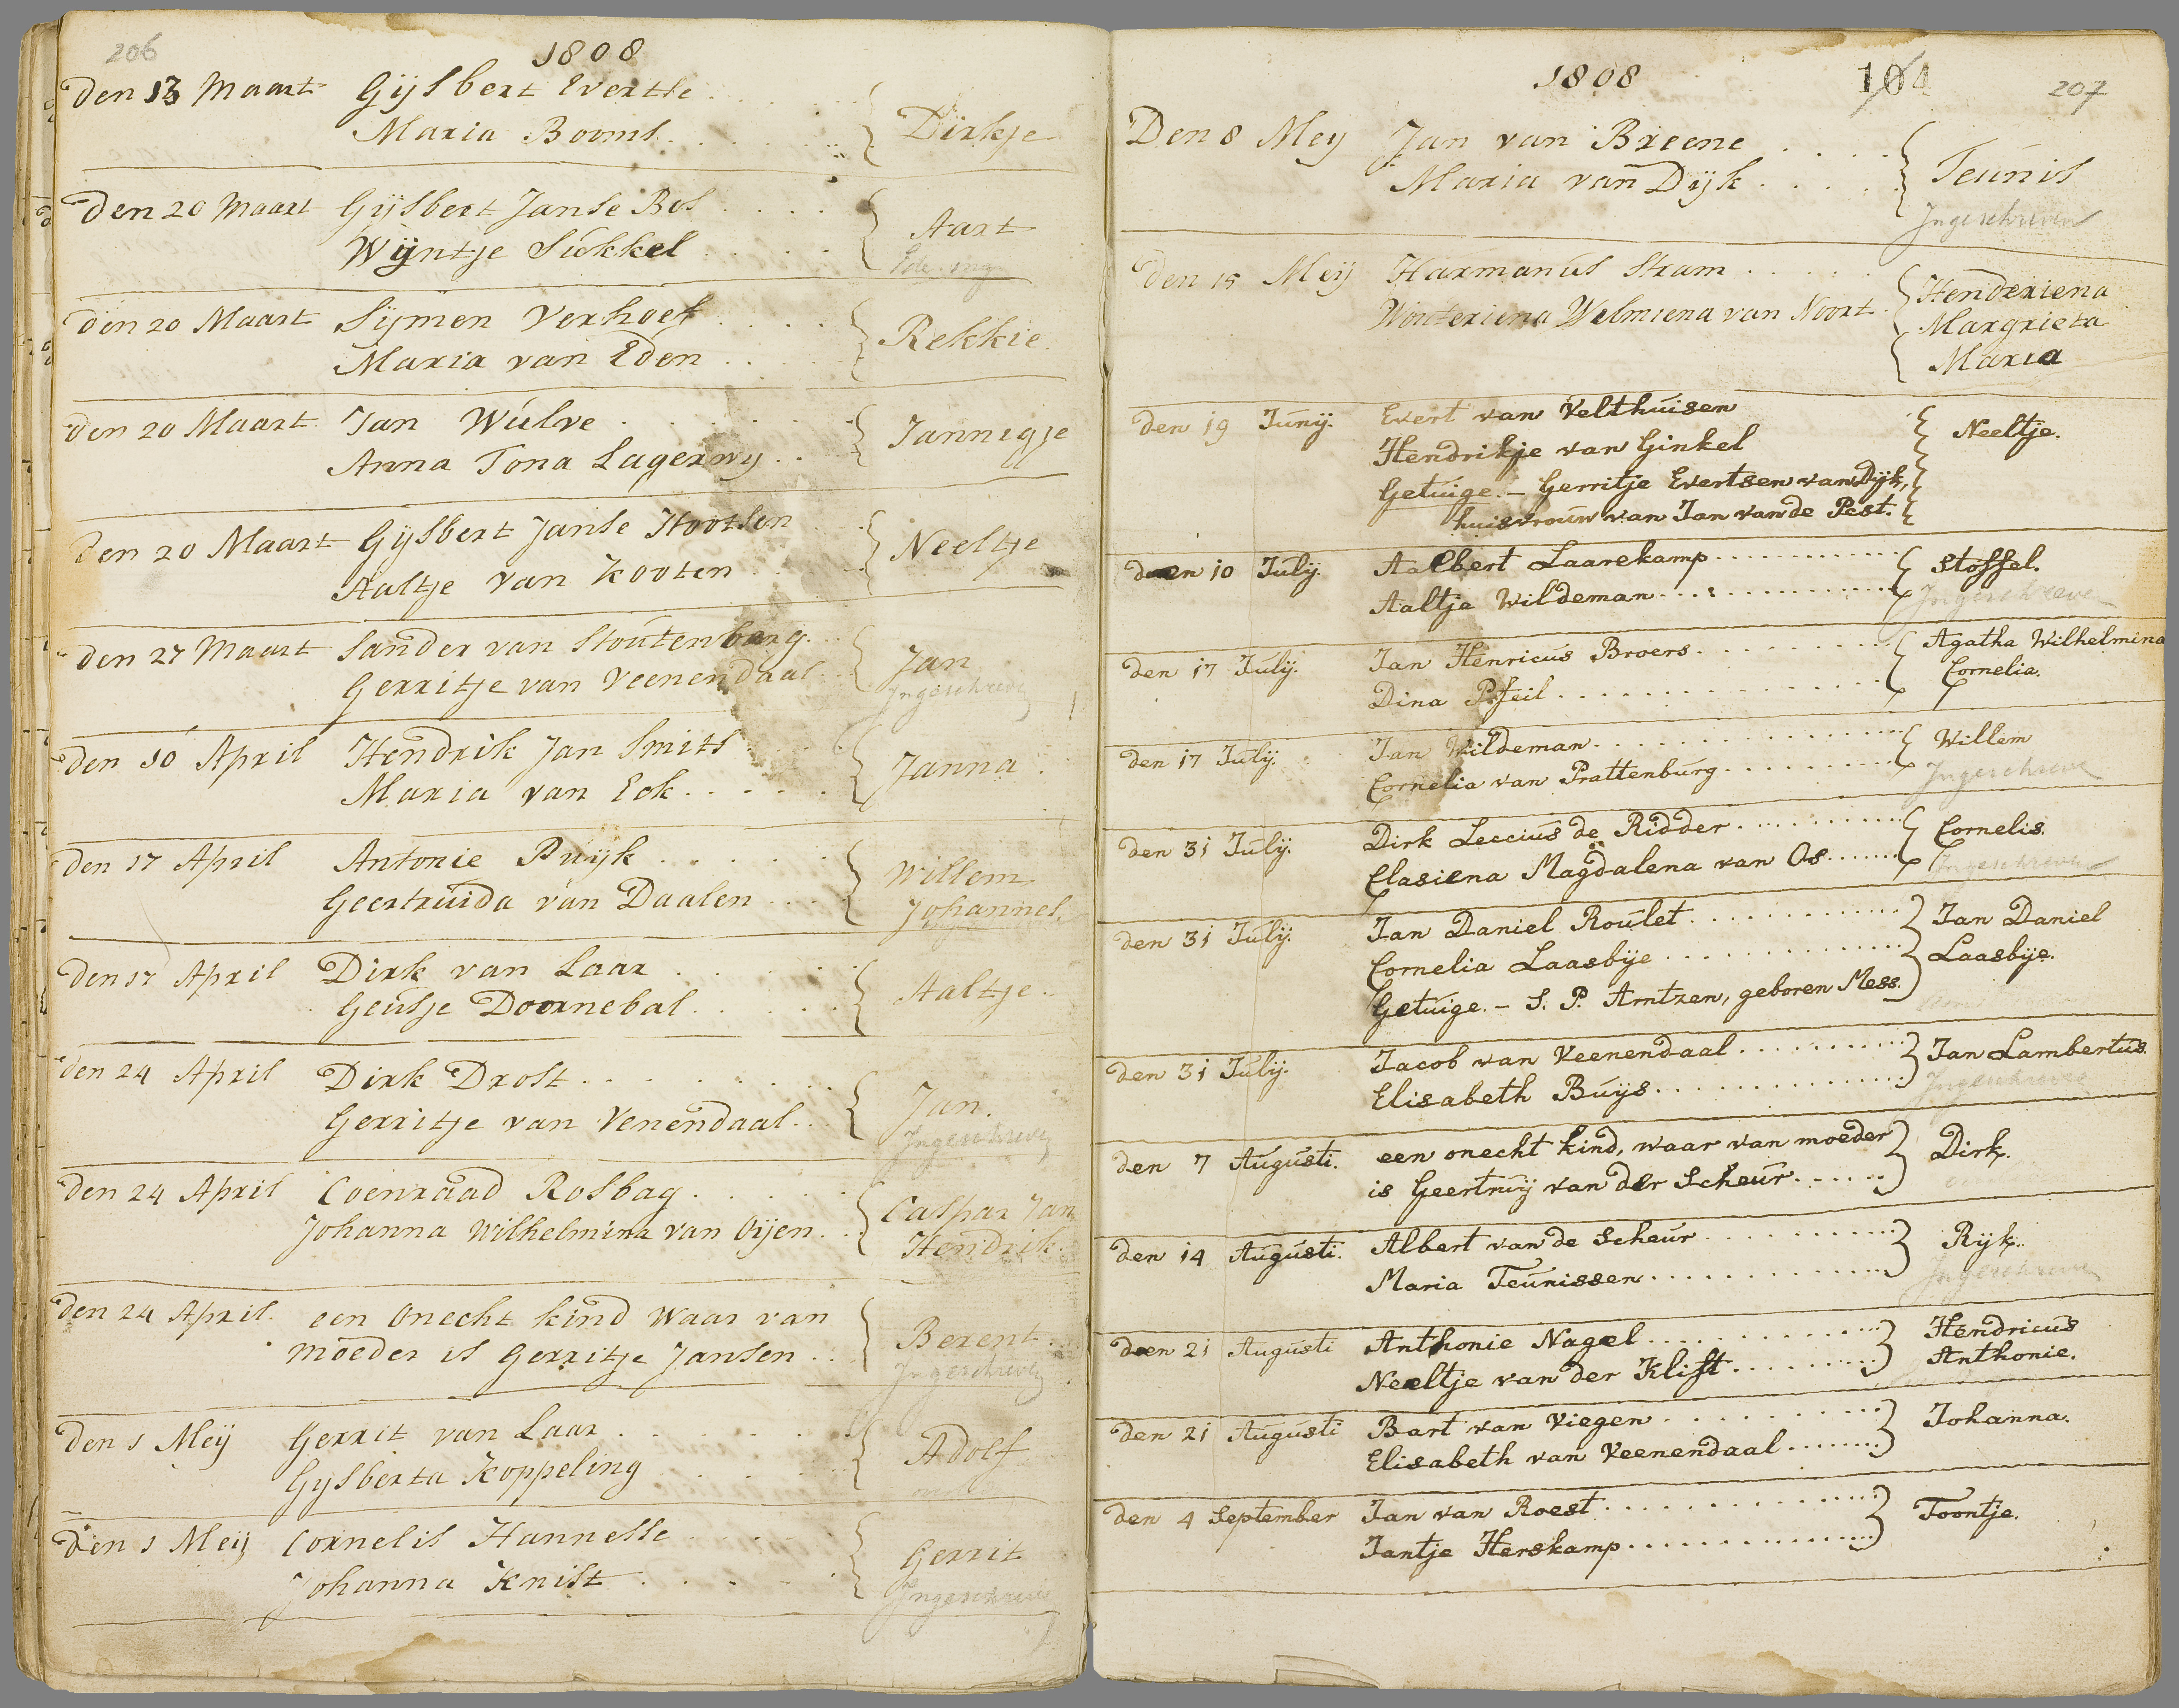 206
1808
Den 13 Maart Gijsbert Evertse
Maria Booms Dirkje
Den 20 Maart Gijsbert Janse Bos
Wijntje Sukkel Aart
den 20 Maart Sijmen Verhoef
Maria van Eden Rekkie.
den 20 Maart Jan Wulve
Anna Tona Lagerwy Jannigje
den 20 Maart Gijsbert Janse Hootsen
Aaltje van Kooten Neeltje
den 27 Maart Sander van Stoutenberg
Gerritje van Veenendaal Jan
Ingeschreve
den 10 April Hendrik Jan Smits
Maria van Eck Janna
den 17 April Antonie Pruijk
Geertruida van Daalen Willem
Johannes
den 17 April Dirk van Laar
Geusje Doornebal Aaltje
den 24 April Dirk Drost
Gerritje van Venendaal Jan.
Ingeschreve
den 24 April Coenraad Rosbag
Johanna Wilhelmina van Oijen Caspar Jan
Hendrik
den 24 April. een Onecht kind Waar van
moeder is Gerritje Jansen Berent
Ingeschreve
den 1 Meij Gerrit van Laar
Gijsberta Koppeling Adolf
den 1 Meij Cornelis Hannesse
Johanna Knist Gerrit
Ingeschreve
1808 104 207
Den 8 Mey Jan van Breene
Maria van Dijk Teunis
Ingeschreven
den 15 Meij Harmanus Stram
Wouteriena Welmiena van Noort Henderiena
Margrieta
Maria
den 19 Junij. Evert van Velthuisen
Hendrikje van Ginkel Neeltje.
Getuige. – Gerritje Evertsen van Dijk,
huisvrouw van Jan van de Pest.
den 10 Julij. Aalbert Laarekamp Stoffel.
Aaltje Wildeman Ingeschreve
den 17 Julij. Jan Henricus Broers Agatha Wilhelmina
Dina Pfeil Cornelia.
den 17 Julij. Jan Wildeman Willem
Cornelia van Prattenburg Ingeschreve
den 31 Julij. Dirk Leccius de Ridder Cornelis.
Clasiena Magdalena van Os Ingeschreve
den 31 Julij. Jan Daniel Roulet Jan Daniel
Cornelia Laasbije Laasbije.
Getuige. – S. P. Arntzen, geboren Mess.
den 31 Julij. Jacob van Veenendaal Jan Lambertus.
Elisabeth Buijs Ingeschreve
den 7 Augusti. een onecht kind, waar van moeder
is Geertruij van der Scheur Dirk.
den 14 Augusti. Albert van de Scheur Rijk.
Maria Teunissen Ingeschreve
den 21 Augusti Anthonie Nagel Hendricus
Neeltje van der Klift Anthonie.
den 21 Augusti Bart van Viegen Johanna.
Elisabeth van Veenendaal
den 4 September Jan van Roest Toontje.
Jantje Herskamp